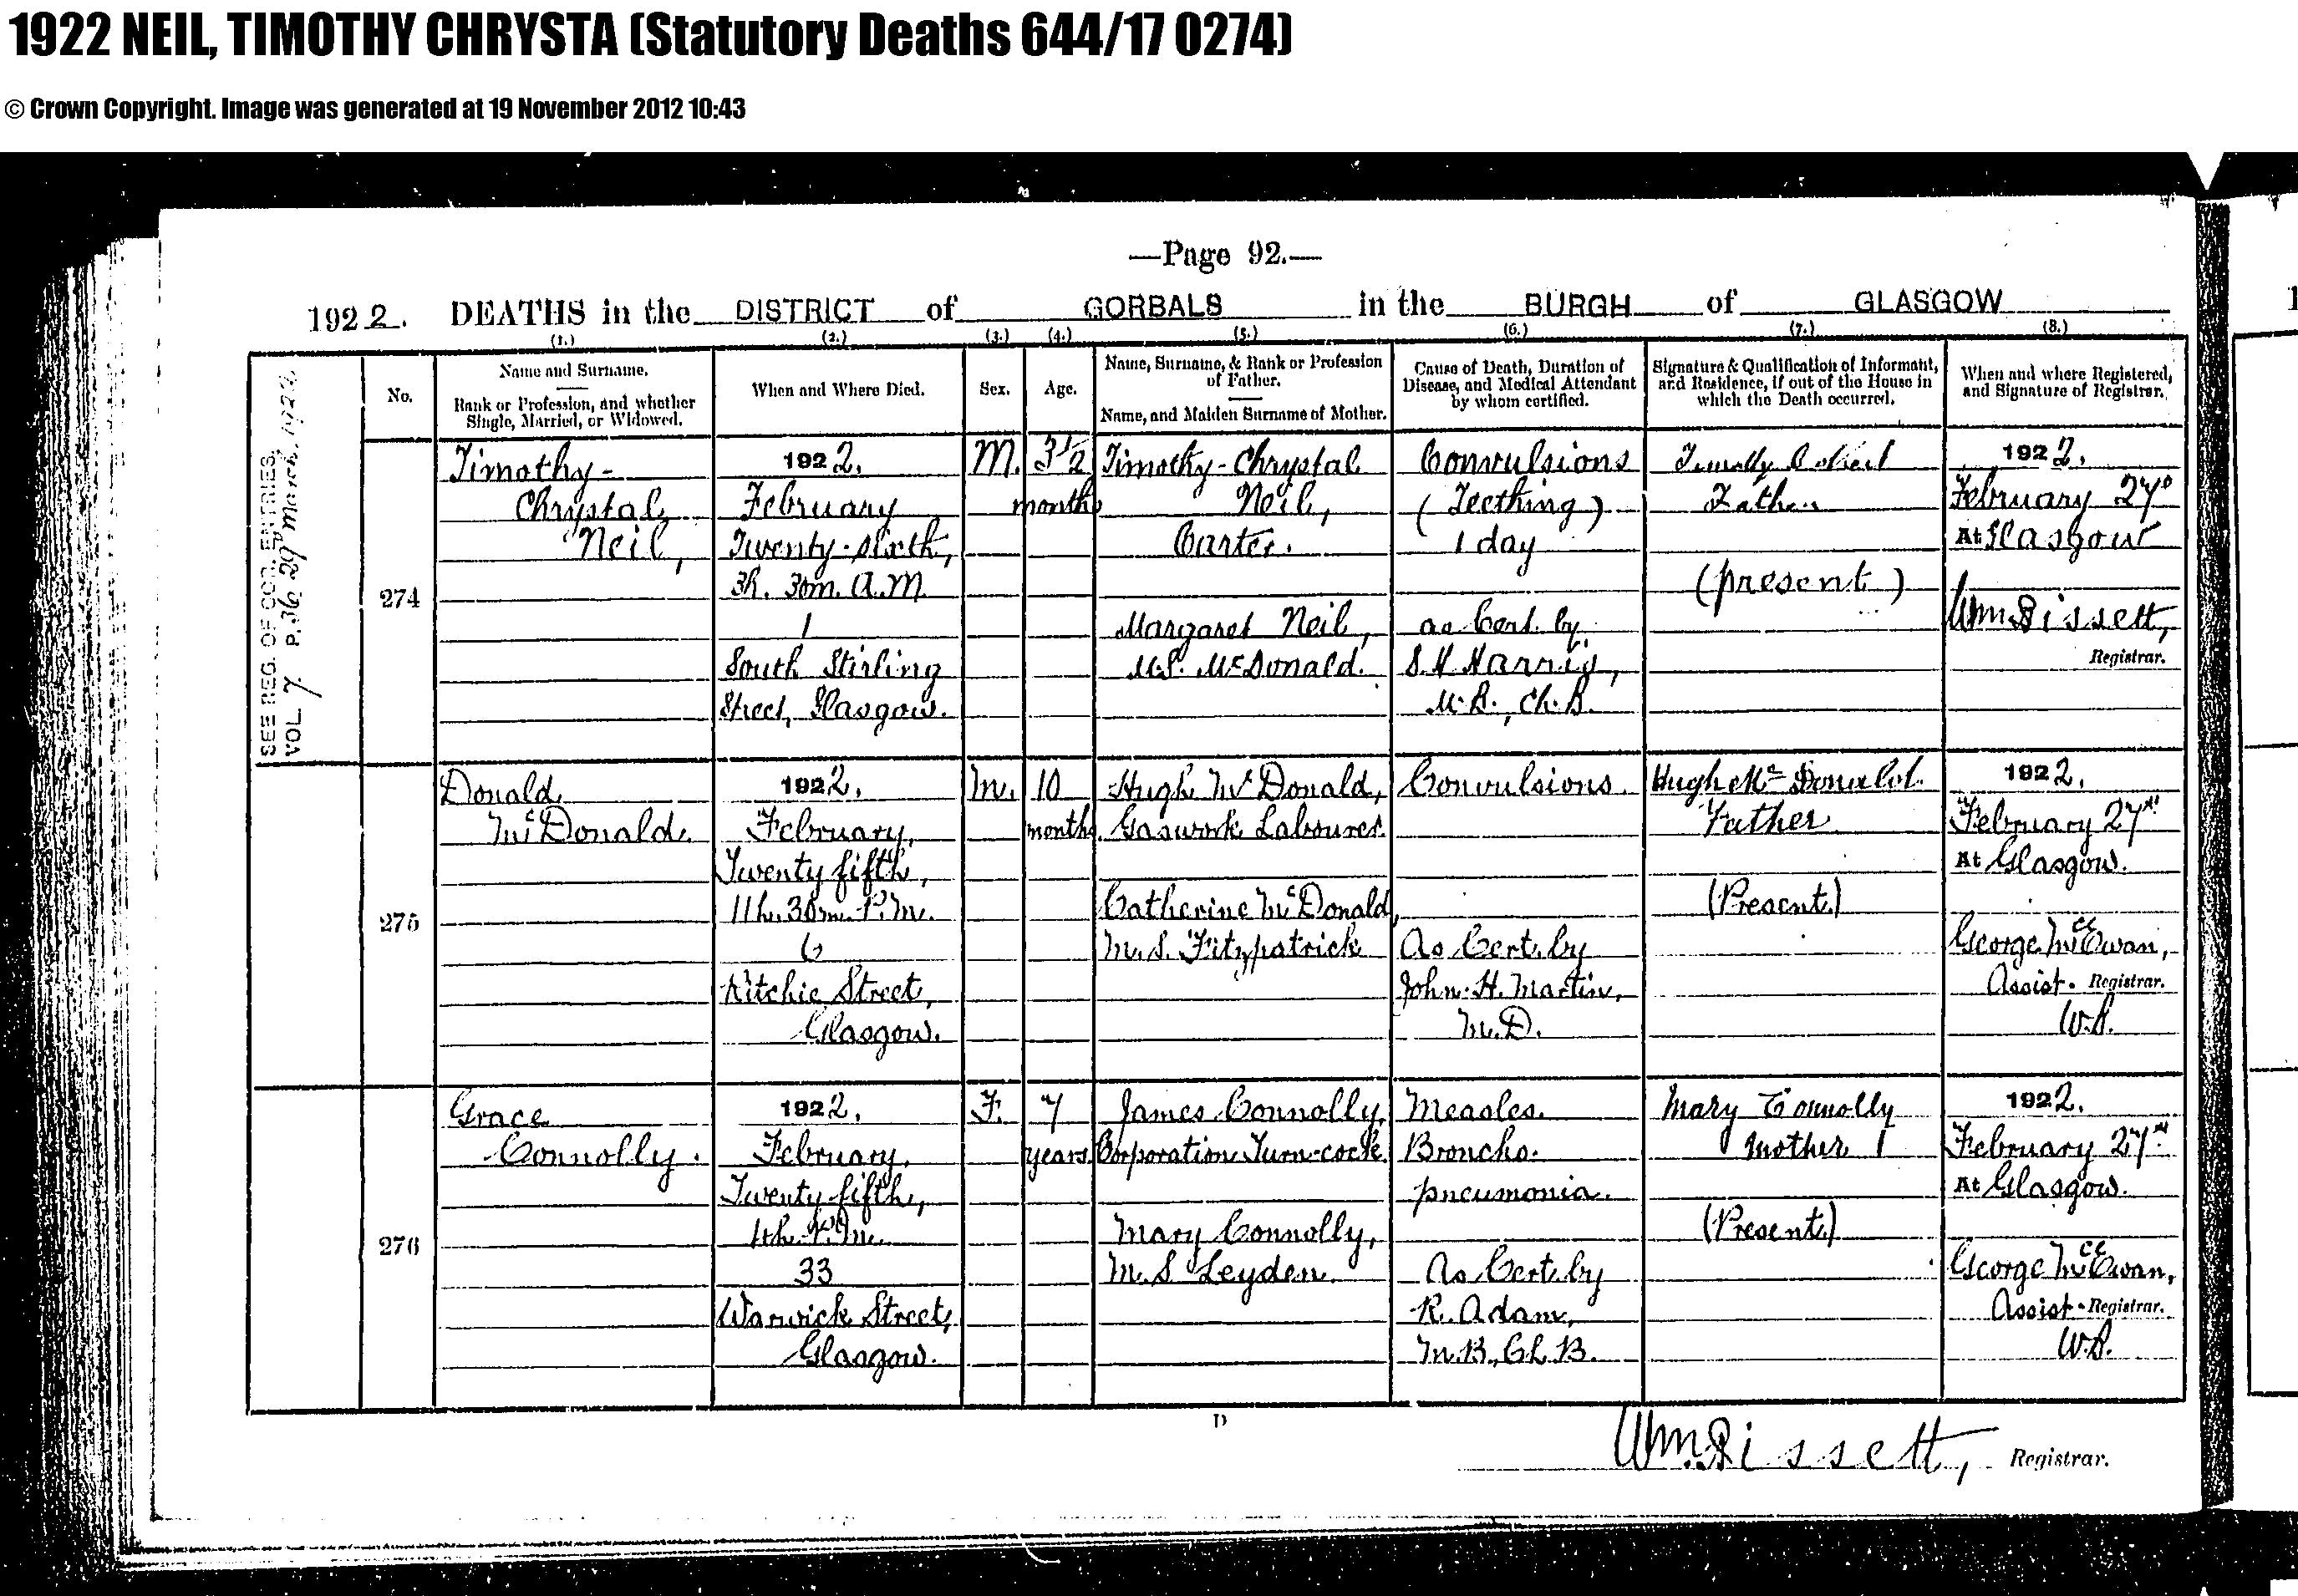 1922 NEIL, TIMOTHY CHRYSTA (Statutory Deaths 644/17 0274)
© Crown Copyright. Image was generated at 19 November 2012 10:43
—Page 92.—
1922. DEATHS in the DISTRICT of GORBALS in the BURGH of GLASGOW
(1.) (2.) (3.) (4.) (5.) (6.) (7.) (8.)
No.
Name and Surname.
Rank or Profession, and whether
Single, Married, or Widowed.
When and Where Died.
Sex.
Age.
Name, Surname, & Rank or Profession
of Father.
Name, and Maiden Surname of Mother.
Cause of Death, Duration of
Disease, and Medical Attendant
by whom certified.
Signature & Qualification of Informant,
and Residence, if out of the House in
which the Death occurred.
When and where Registered,
and Signature of Registrar.
SEE REG. OF COR. ENTRIES,
VOL. 7 P. 36, 29th March, 1922.
274
Timothy-
Chrystal
Neil,
1922.
February
Twenty-sixth,
3h. 30m. A.M.
1
South Stirling
Street, Glasgow.
M.
3 1/2
months
Timothy-Chrystal
Neil,
Carter.
Margaret Neil,
M.S. McDonald.
Convulsions
(Teething)
1 day
as Cert. by
S. H Harris,
M.B., Ch.B.
Timothy C Neil
Father
(present)
1922.
February 27th
At Glasgow
Wm Bissett,
Registrar.
275
Donald
McDonald.
1922.
February,
Twenty fifth,
11h. 30m. P.M.
6
Ritchie Street,
Glasgow.
M.
10
months.
Hugh McDonald,
Gaswork Labourer.
Catherine McDonald,
M.S. Fitzpatrick
Convulsions.
As Cert. by
John. H. Martin,
M.D.
Hugh Mc Donald.
Father
(Present.)
1922.
February 27th
At Glasgow.
George McEwan,
Assist. Registrar.
W.B.
276
Grace
Connolly.
1922.
February,
Twenty fifth,
P.M.
33
Warwick Street,
Glasgow.
F.
7
years.
James Connolly,
Corporation Turn-cock.
Mary Connolly,
M.S Leyden.
Measles.
Broncho-
pneumonia.
As Cert. by
R. Adam,
M.B., Ch.B.
Mary Connolly
Mother
(Present.)
1922.
February 27th
At Glasgow.
George McEwan,
Assist. Registrar.
W.B.
D
Wm Bissett, Registrar.